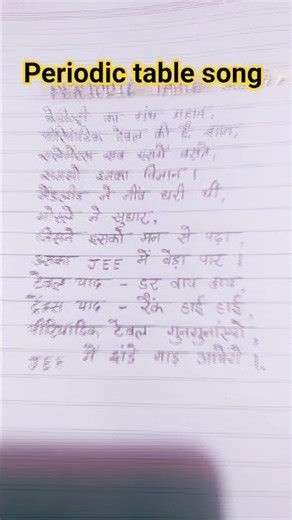 Periodic table song
PERIODIC TABLE
केमिस्ट्री का ग्रंथ महान,
पीरियोडिक टेबल की है शान,
एलिमेंट्स सब इसमें बसते,
समझो इनका विज्ञान।
मैंडलीव ने नींव धरी थी,
मोसले ने सुधार,
जिसने इसको मन से पढ़ा,
उसका JEE में बेड़ा पार।
टेबल याद - डर बाय बाय,
ट्रेंड्स याद - रैंक हाई हाई,
पीरियोडिक टेबल गुनगुनाएंगे,
JEE में झंडे गाड़ आयेंगे।